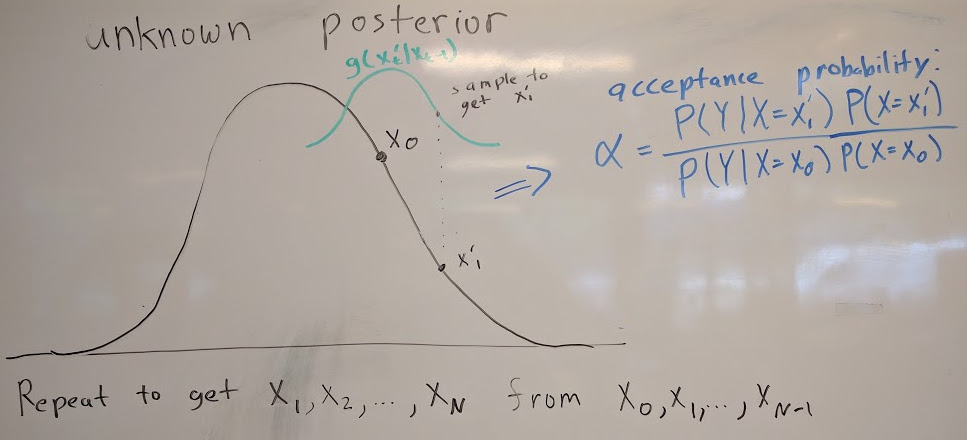 unknown posterior
g(x'ₜ|xₜ₋₁)
sample to
get x'₁
X₀
x'₁
⇒
acceptance probability:
α = P(Y|X=x'₁) P(X=x'₁) / P(Y|X=x₀) P(X=x₀)
Repeat to get X₁, X₂, ..., X_N from X₀, X₁, ..., X_N-1